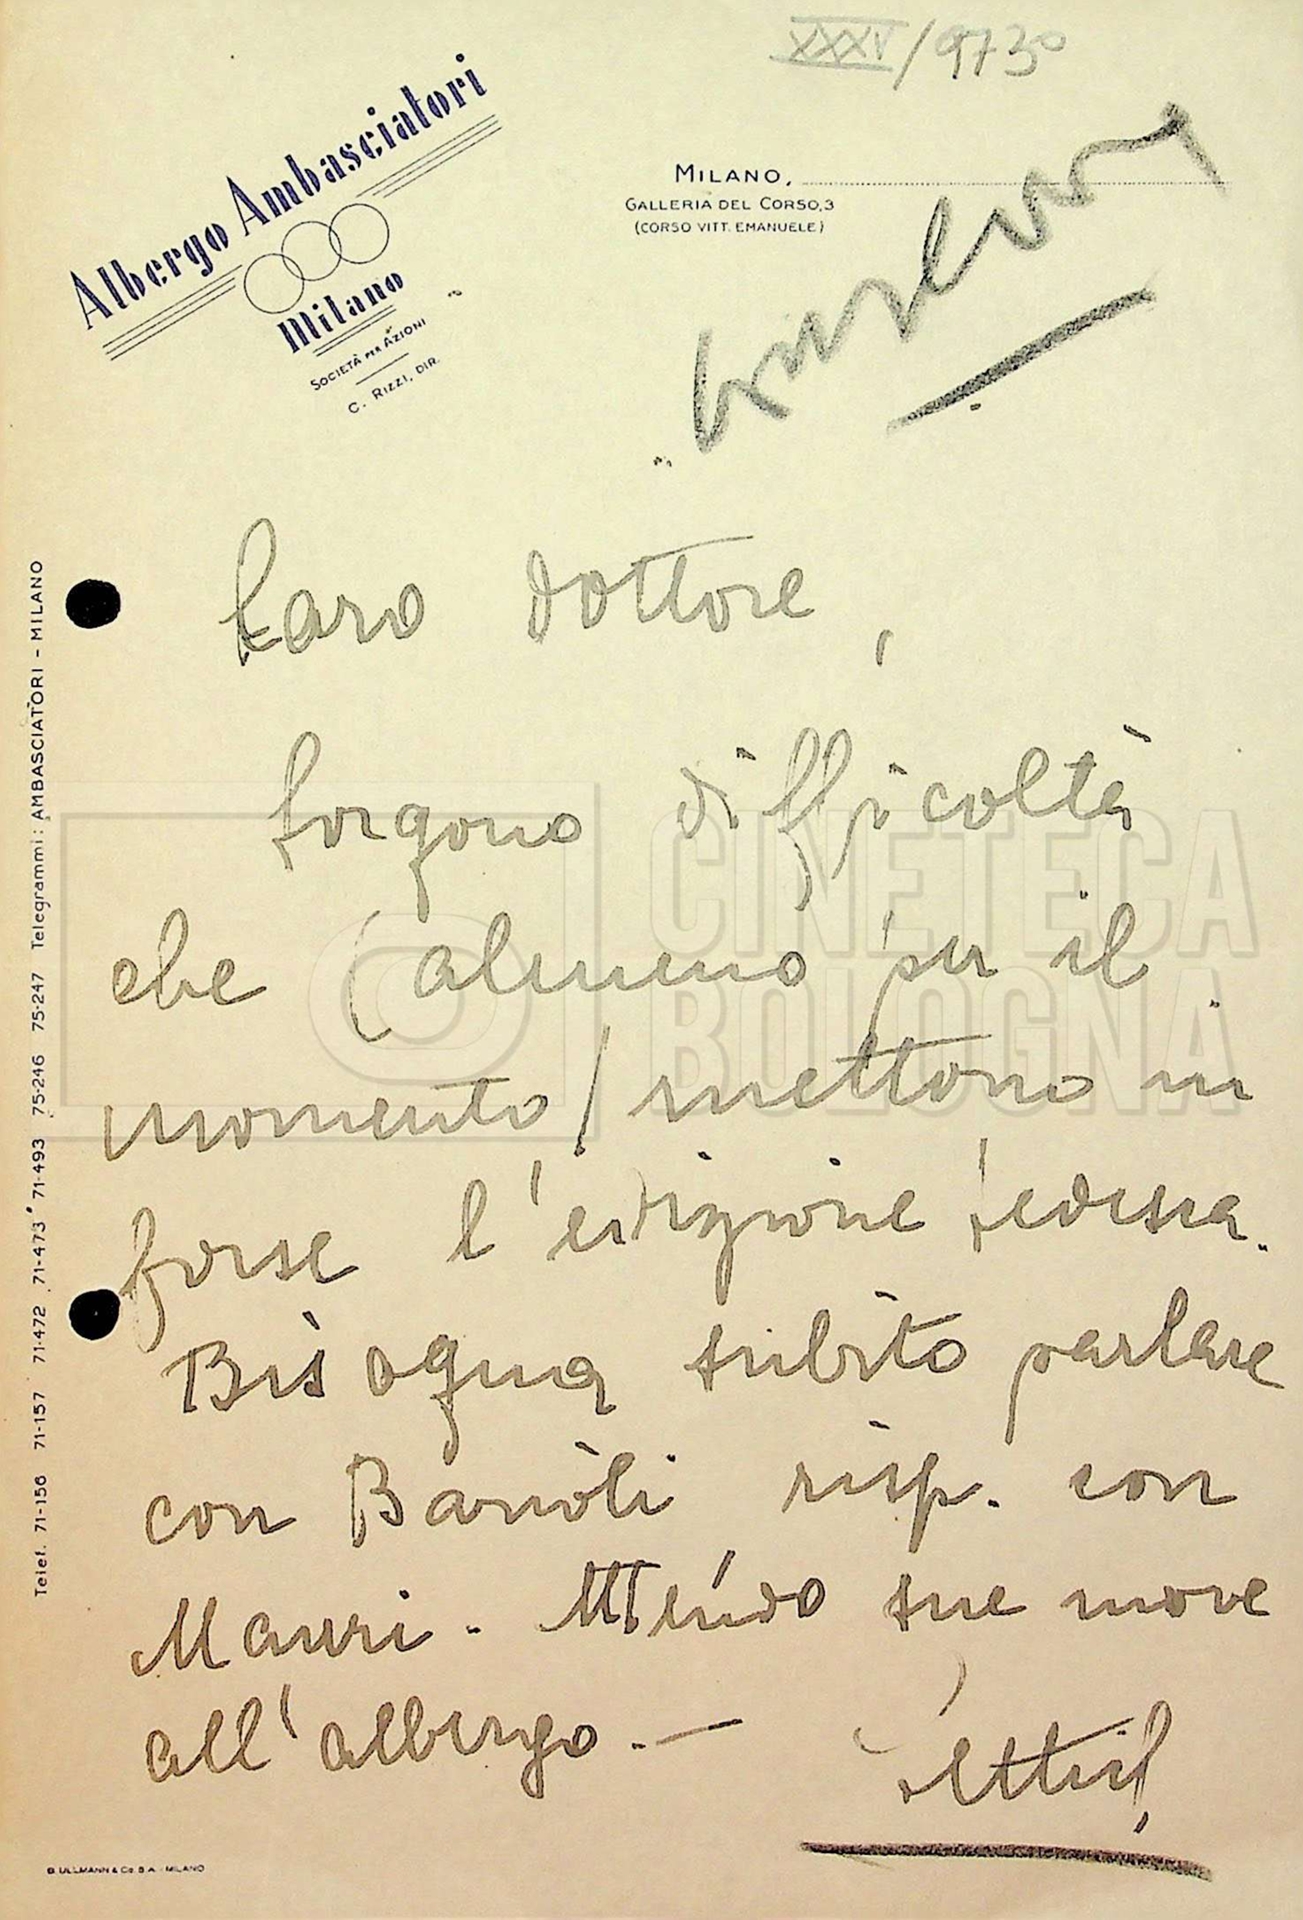 XXXV/9730
Albergo Ambasciatori
Milano
SOCIETÀ PER AZIONI
C. RIZZI, DIR.
MILANO,
GALLERIA DEL CORSO, 3
(CORSO VITT. EMANUELE)
Caro dottore,
sorgono difficoltà
che (almeno per il
momento) mettono in
forse l'edizione tedesca.
Bisogna subito parlare
con Barròli risp. con
Mauri. Attendo sue nuove
all'albergo. —
Telef. 71-156 71-157 71-472 71-473 71-493 75-246 75-247 Telegrammi: AMBASCIATORI - MILANO
G. ULLMANN & Co. S.A. - MILANO
CINETECA
BOLOGNA